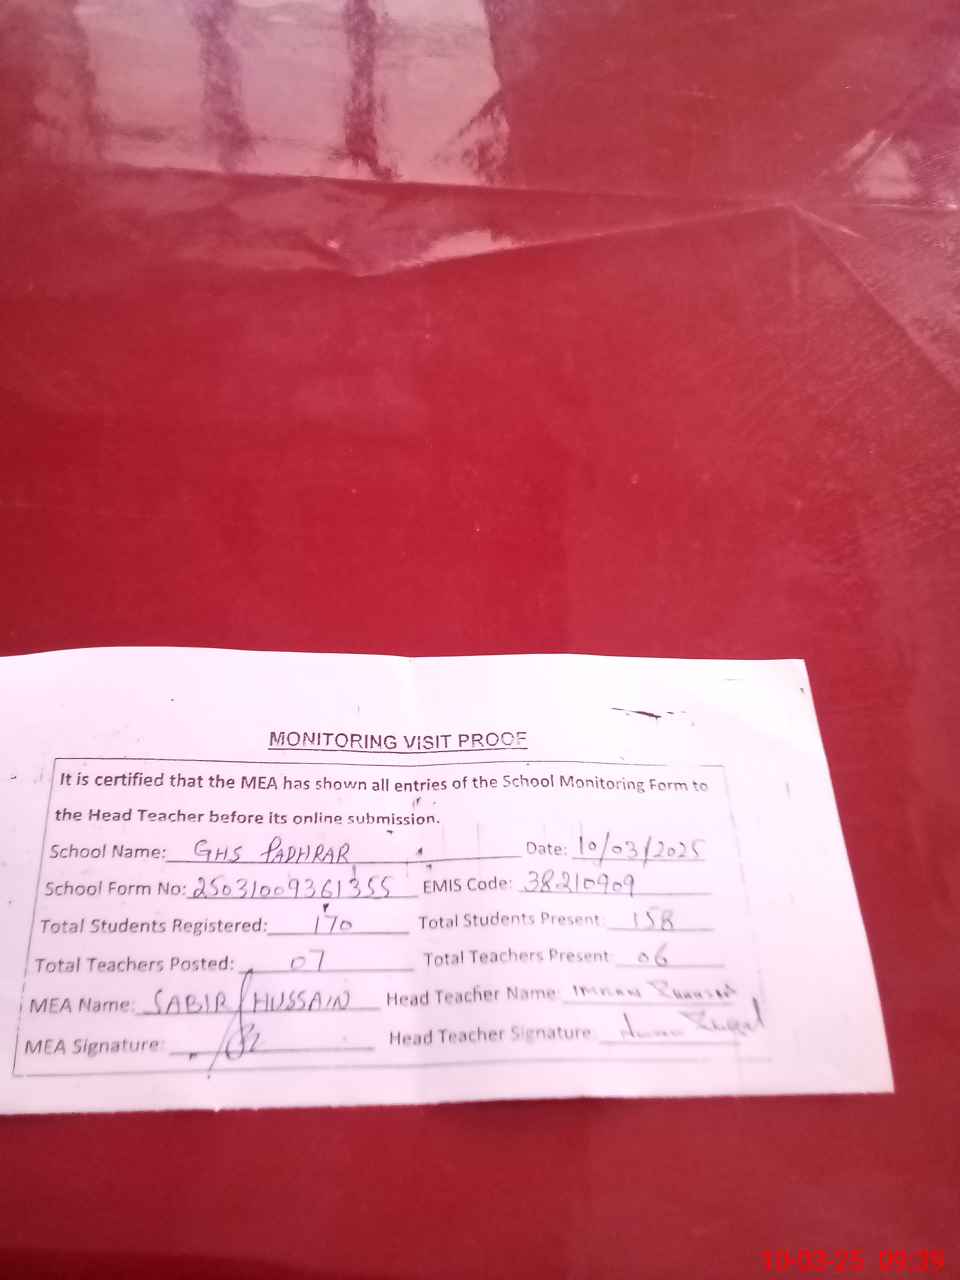 MONITORING VISIT PROOF
It is certified that the MEA has shown all entries of the School Monitoring Form to
the Head Teacher before its online submission.
School Name: GHS PADHRAR Date: 10/03/2025
School Form No: 25031009361355 EMIS Code: 38210909
Total Students Registered: 170 Total Students Present: 158
Total Teachers Posted: 07 Total Teachers Present: 06
MEA Name: SABIR HUSSAIN Head Teacher Name: Imran
MEA Signature: Head Teacher Signature:
10-03-25 09:39